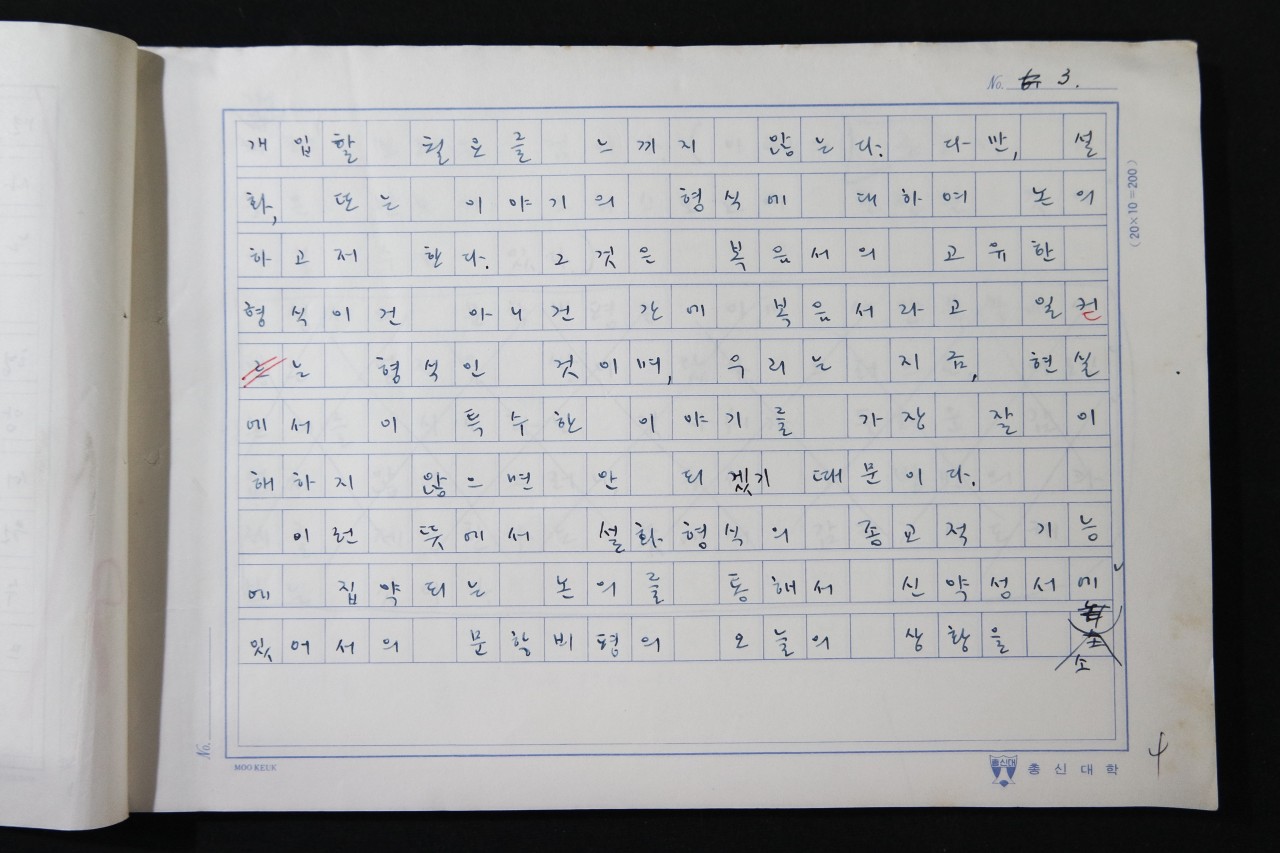 No. 3.
개입할 필요를 느끼지 않는다. 다만, 설
화, 또는 이야기의 형식에 대하여 논의
하고저 한다. 그것은 복음서의 고유한
형식이건 아니건 간에 복음서라고 일컫
는 형식인 것이며, 우리는 지금, 현실
에서 이 특수한 이야기를 가장 잘 이
해하지 않으면 안 되겠기 때문이다.
이런 뜻에서 설화형식의 종교적 기능
에 집약되는 논의를 통해서 신약성서에
있어서의 문학비평의 오늘의 상황을
소
(20×10=200)
No.
MOO KEUK
총신대
총신대학
4